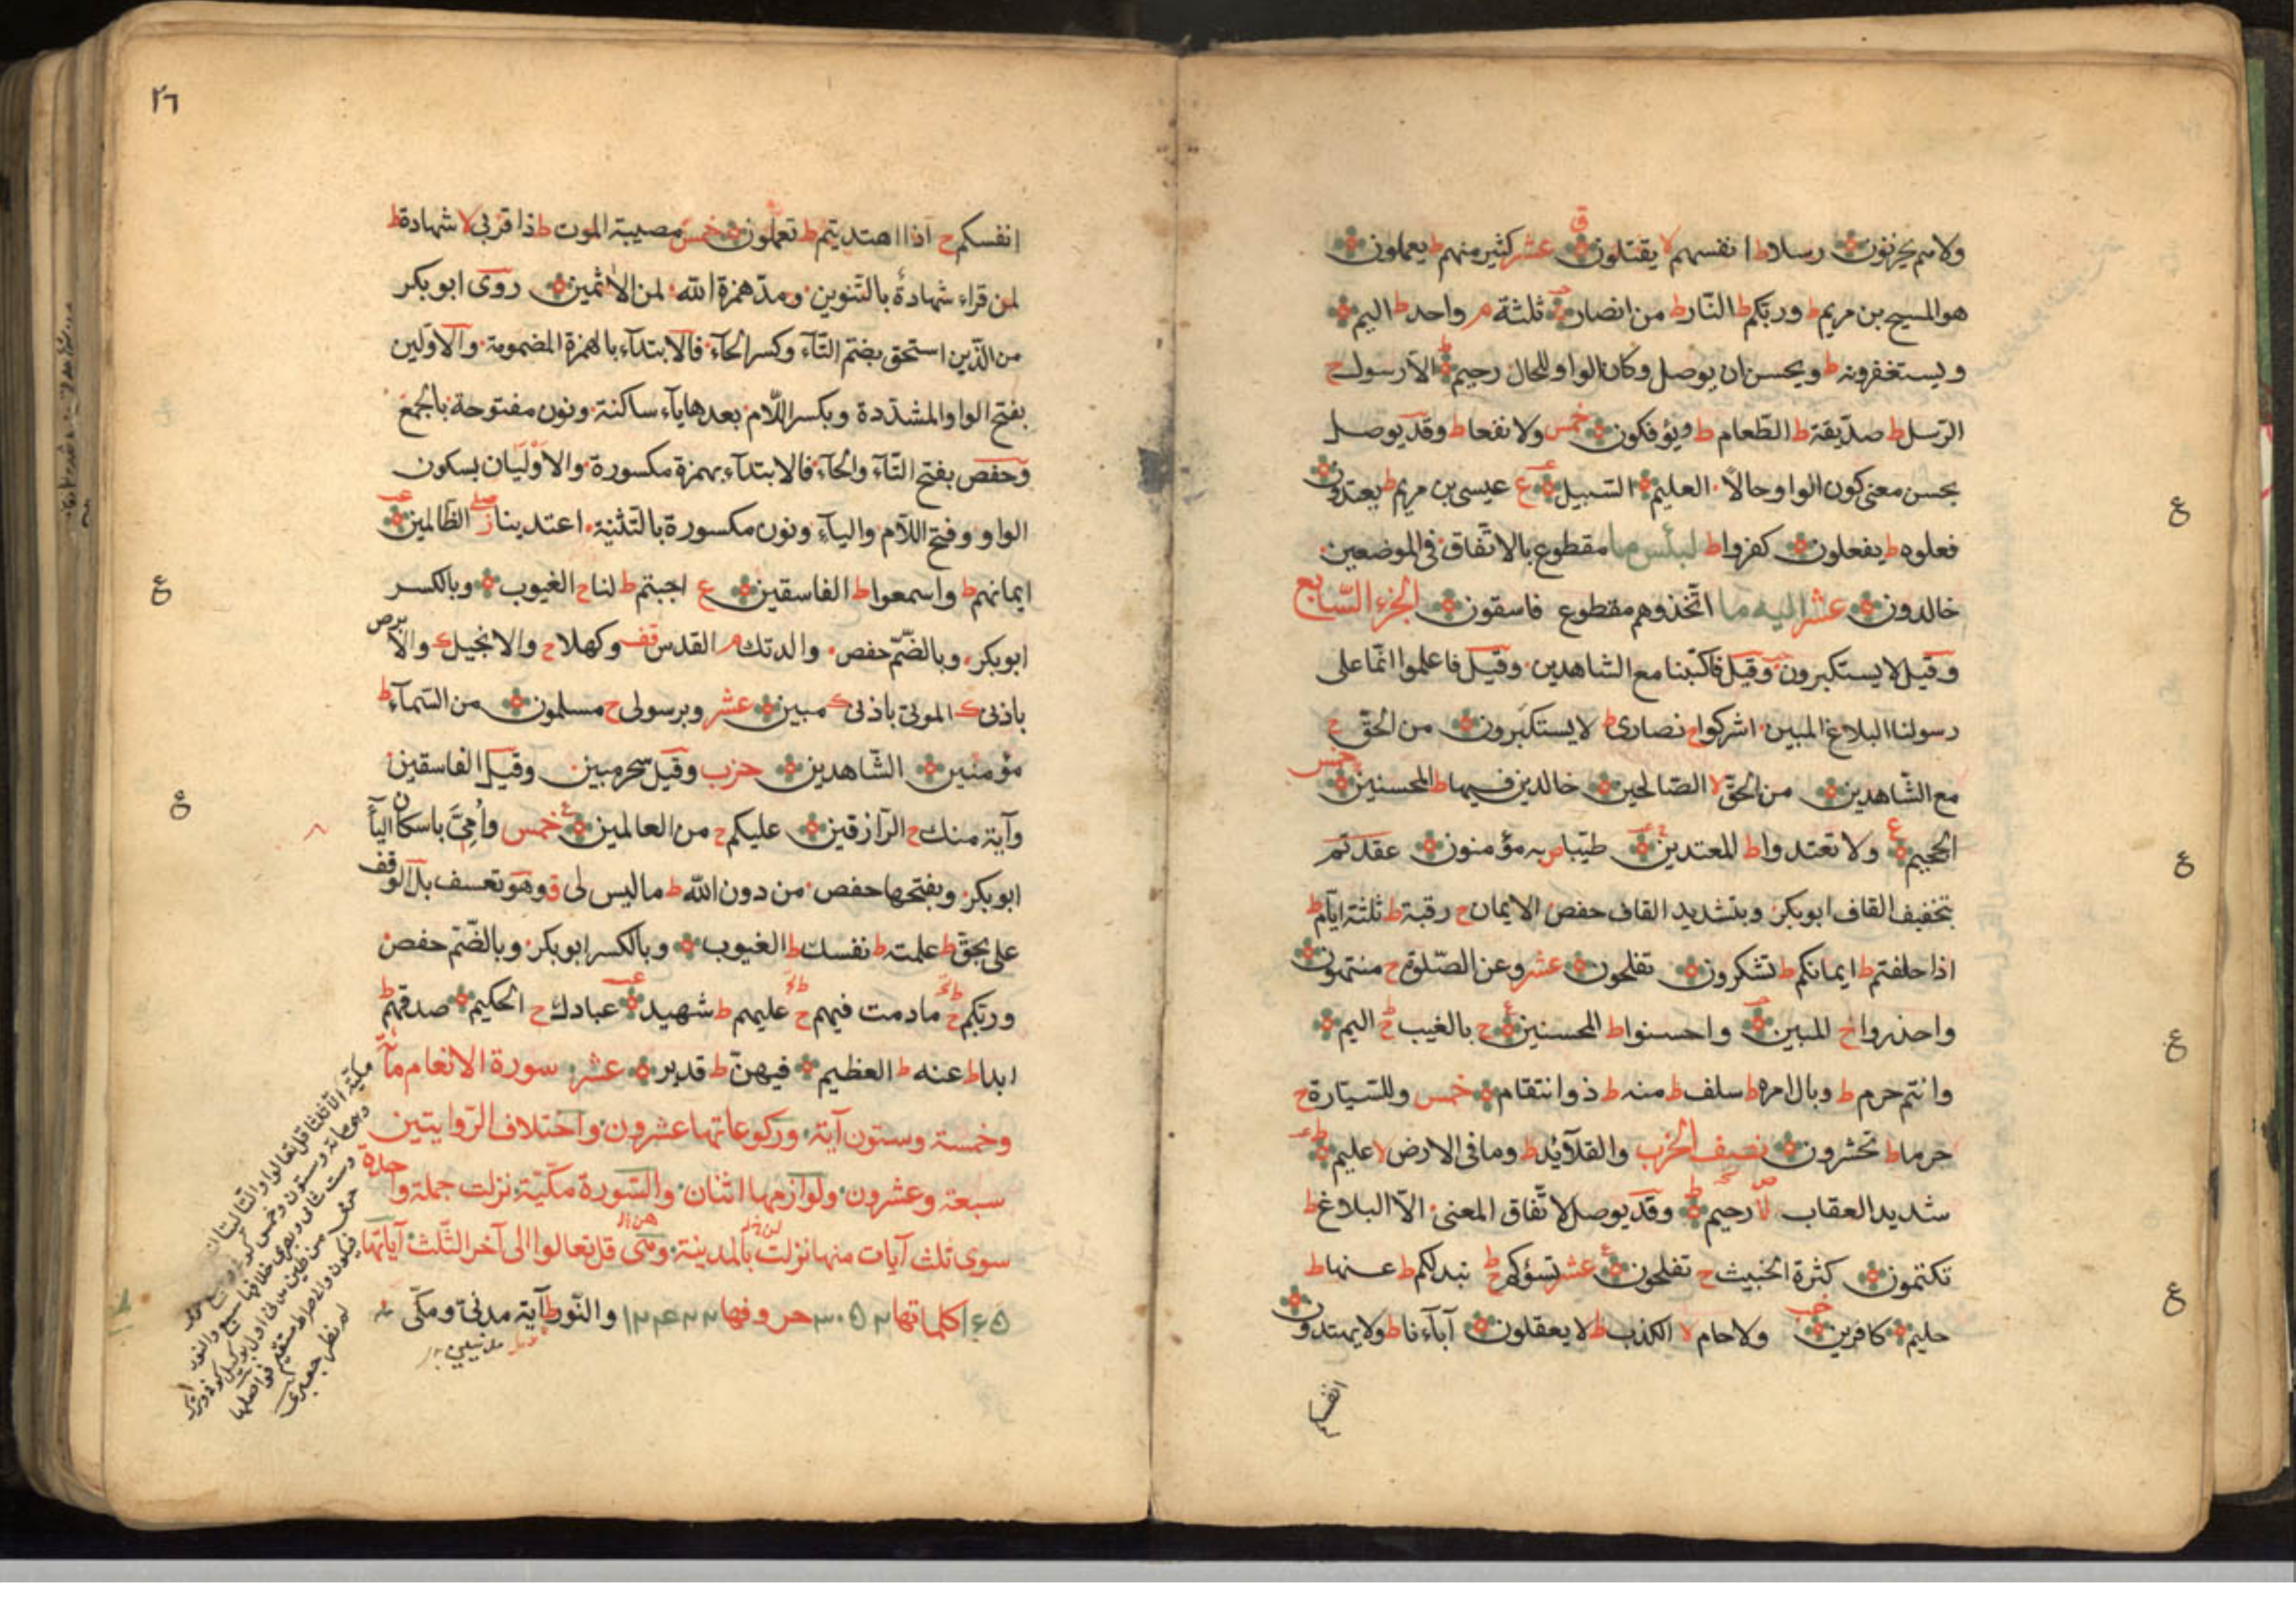 ولاهم يحزنون رسلا ط انفسهم لا يقتلون ق عشر كثير منهم ط يعملون
هو المسيح بن مريم ط وربكم ط النار ط من انصار ثلثة م واحد ط اليم
ويستغفرونه ط ويحسن ان يوصل وكان الواو للحال رحيم ط الا رسول ج
الرسل ط صديقة ط الطعام ط ويؤفكون خمس ولا نفعا ط وقد يوصل
بحسن معنى كون الواو حالا العليم السبيل ع عيسى بن مريم ط يعتدون
فعلوه ط يفعلون كفروا ط لبئس ما مقطوع بالاتفاق في الموضعين
خالدون عشر اليه ما اتخذوهم مقطوع فاسقون الجزء السابع
وقيل لا يستكبرون وقيل فاكتبنا مع الشاهدين وقيل فاعلموا انما على
رسولنا البلاغ المبين اشركوا ج نصارى ط لا يستكبرون من الحق ج
مع الشاهدين من الحق لا الصالحين خالدين فيها ط المحسنين خمس
الجحيم ع ولا تعتدوا ط المعتدين طيبا ص به مؤمنون عقدتم
بتخفيف القاف ابو بكر وبتشديد القاف حفص الايمان ج رقبة ط ثلثة ايام ط
اذا حلفتم ط ايمانكم ط تشكرون تفلحون عشر وعن الصلوة ج منتهون
واحذروا ج المبين واحسنوا ط المحسنين ع بالغيب ج اليم
وانتم حرم ط وبال امره ط سلف ط منه ط ذو انتقام خمس وللسيارة ج
حرما ط تحشرون نصف الحزب والقلائد ط وما في الارض لا عليم
شديد العقاب لا رحيم ط وقد يوصل لاتفاق المعنى الا البلاغ ط
تكتمون كثرة الخبيث ج تفلحون ع عشر تسؤكم ج تبدلكم ط عنها ط
حليم كافرين ولا حام لا الكذب ط لا يعقلون آباءنا ط ولا يهتدون
انفسكم
ع
ع
ع
ع
٢٦
انفسكم ج اذا اهتديتم ط تعملون خمس مصيبة الموت ط ذا قربى لا شهادة ط
لمن قراء شهادة بالتنوين ومد همزة الله لمن الاثمين روى ابو بكر
من الذين استحق بضم التاء وكسر الحاء فالابتداء بالهمزة المضمومة والاولين
بفتح الواو المشددة وبكسر اللام بعدها ياء ساكنة ونون مفتوحة بالجمع
وحفص بفتح التاء والحاء فالابتداء بهمزة مكسورة والاوليان بسكون
الواو وفتح اللام والياء ونون مكسورة بالتثنية اعتدينا ز صل الظالمين
ايمانهم ط واسمعوا ط الفاسقين ع اجبتم ط لنا ج الغيوب وبالكسر
ابو بكر وبالضم حفص والدتك م القدس قف وكهلا ج والانجيل ك والابرص
باذنى ك الموتى باذنى ك مبين عشر وبرسولى ج مسلمون من السماء ط
مؤمنين الشاهدين حزب وقيل سحر مبين وقيل الفاسقين
وآية منك ج الرازقين عليكم ج من العالمين ع خمس وامى باسكان الياء
ابو بكر وبفتحها حفص من دون الله ط ما ليس لى ق وهو تعسف بل الوقف
على بحق ط علمته ط نفسك ط الغيوب وبالكسر ابو بكر وبالضم حفص
وربكم ج ما دمت فيهم ج عليهم ط شهيد عبادك ج الحكيم صدقهم ط
ابدا ط عنه ط العظيم فيهن ط قدير عشر سورة الانعام مائة
وخمسة وستون آية وركوعاتها عشرون واختلاف الروايتين
سبعة وعشرون ولوازمها اثنان والسورة مكية نزلت جملة واحدة
سوى ثلث آيات منها نزلت بالمدينة وهى قل تعالوا الى آخر الثلث آياتها
١٦٥ كلماتها ٣٠٥٢ حروفها ١٢٤٢٢ والنور آية مدنى ومكى
ع
ع